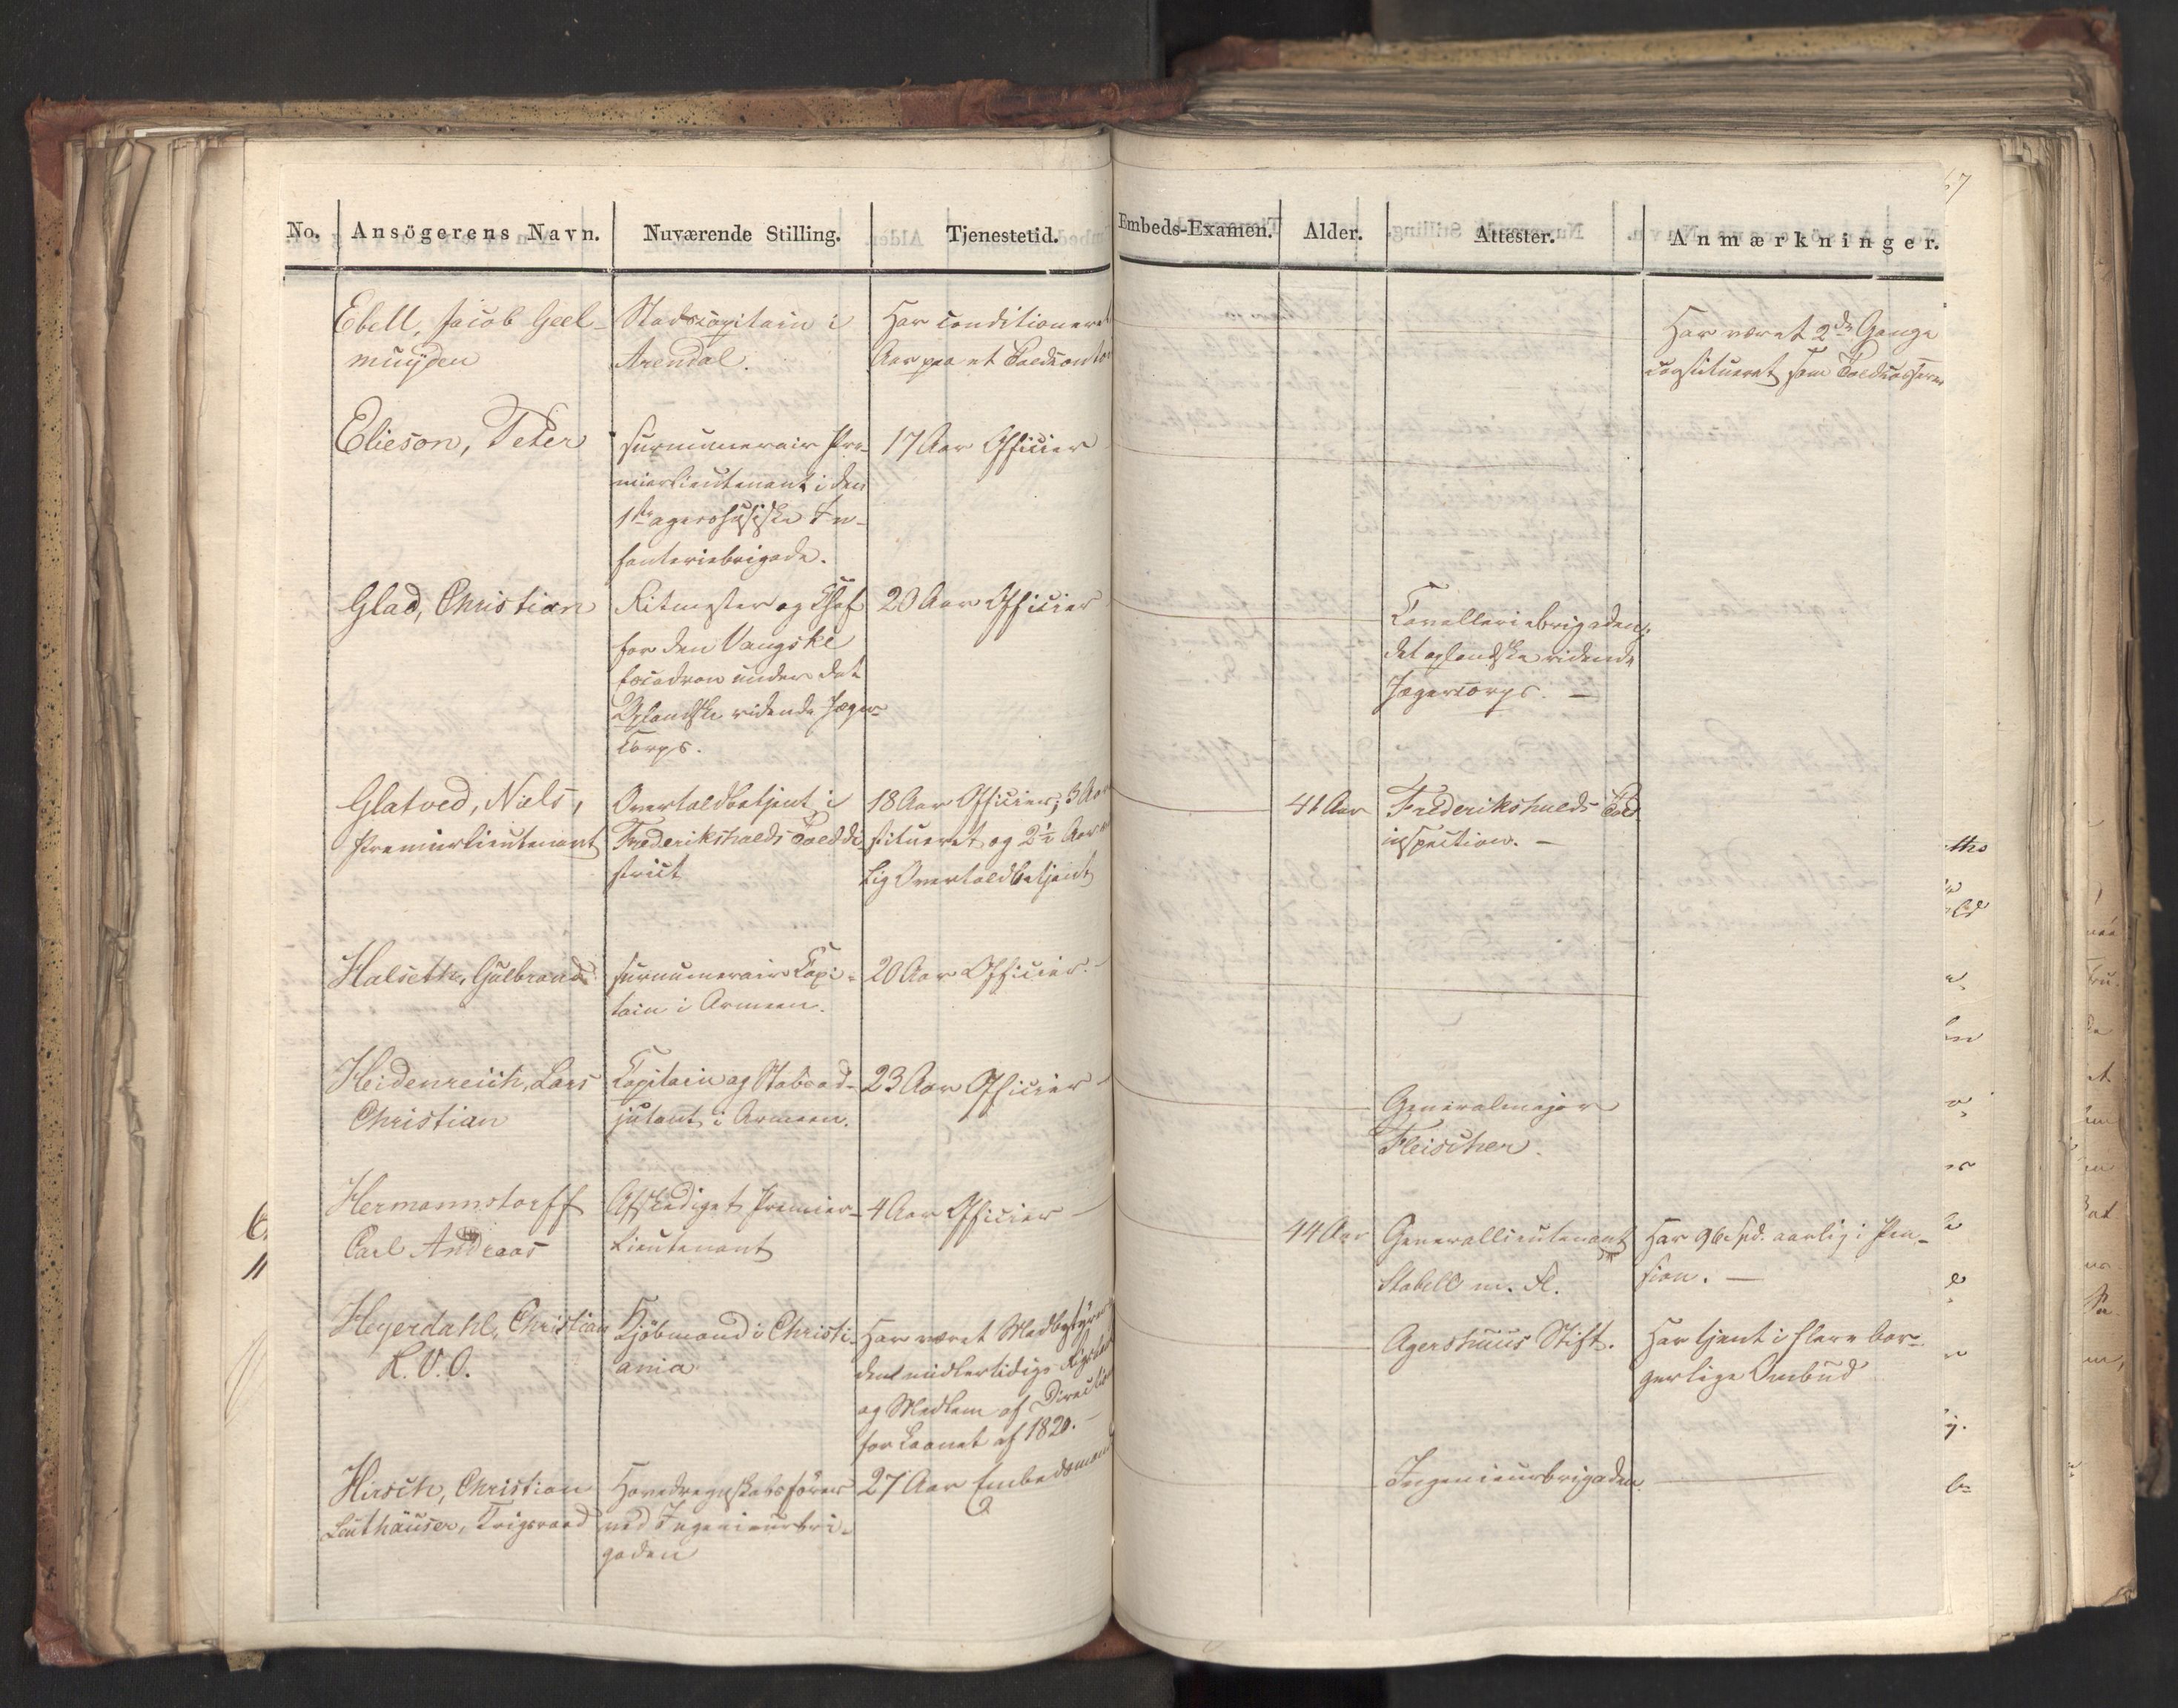 No. Ansögerens Navn. Nuværende Stilling. Tjenestetid. Embeds-Examen. Alder. Attester. Anmærkninger.
Ebell, Jacob Geel-
muÿden
Stadscapitain i
Arendal.
Har conditioneret
Aar paa et Toldcontor
Har været 2de Gange
constitueret som Toldcasserer
Elieson, Peter
surnumerair Pre-
mierlieutenant i den
1ste agershusiske In-
fanteriebrigade.
17 Aar Officier
Glad, Christian
Ritmester og Chef
for den Vangske
Escadron under det
Oplandske ridende Jæger-
Corps.
20 Aar Officier
Cavalleriebrigaden,
det oplandske ridende
Jægercorps. —
Glatved, Niels,
Premierlieutenant
Overtoldbetjent i
Frederikshalds Tolddi-
strict
18 Aar Officier, 3 Aar
stitueret og 2½ Aar
lig Overtoldbetjent
41 Aar
Frederikshalds Told
inspection. —
Halseth, Gulbrand
surnumerair Capi-
tain i Armeen.
20 Aar Officier. —
Heidenreich, Lars
Christian
Capitain og Stabsad-
jutant i Armeen.
23 Aar Officier —
Generalmajor
Fleischer.
Hermannstorff
Carl Andreas
Afskediget Premier-
Lieutenant
4 Aar Officier —
44 Aar
Generallieutenant
Stabell m. Fl.
Har 96 Spd. aarlig i Pen-
sion. —
Heyerdahl, Christian
R. V. O.
Kjöbmand i Christi-
ania
Har været Medbestÿrer
den midlertidige Rigsbank
og Medlem af Direction
for Laanet af 1820. —
Agershuus Stift.
Har tjent i flere bor-
gerlige Ombud
Hirsch, Christian
Leuthäuser, Krigsraad
Hovedregnskabsförer
ved Ingenieurbri-
gaden
27 Aar Embedsmand
Ingenieurbrigaden